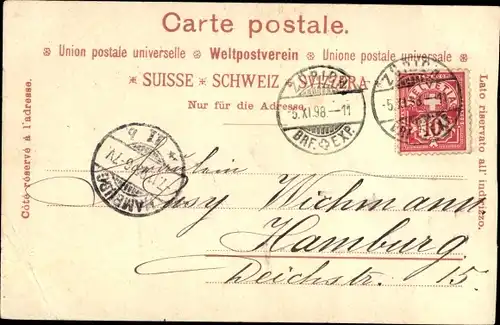 Carte postale.
* Union postale universelle * Weltpostverein * Unione postale universale *
* SUISSE * SCHWEIZ * SVIZZERA *
Nur für die Adresse.
Côté réservé à l'adresse.
Lato riservato all' indirizzo.
ZÜRICH
-5.XI.98.-11
BRF. EXP.
-5.XI.98.-11
HELVETIA
10
HAMBURG
Fräulein
Wichmann
Hamburg
Deichstr. 15.